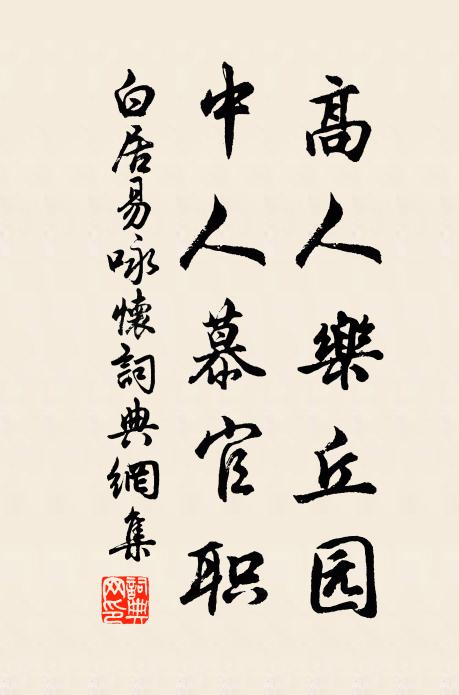 高人樂丘园
中人慕官职
白居易咏懷詞典網集
詞典网印